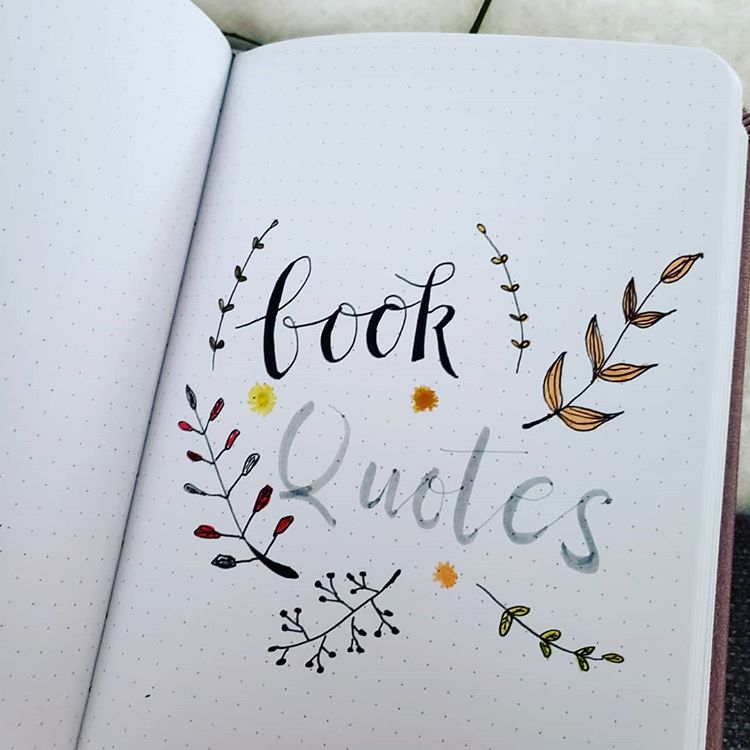 book
Quotes